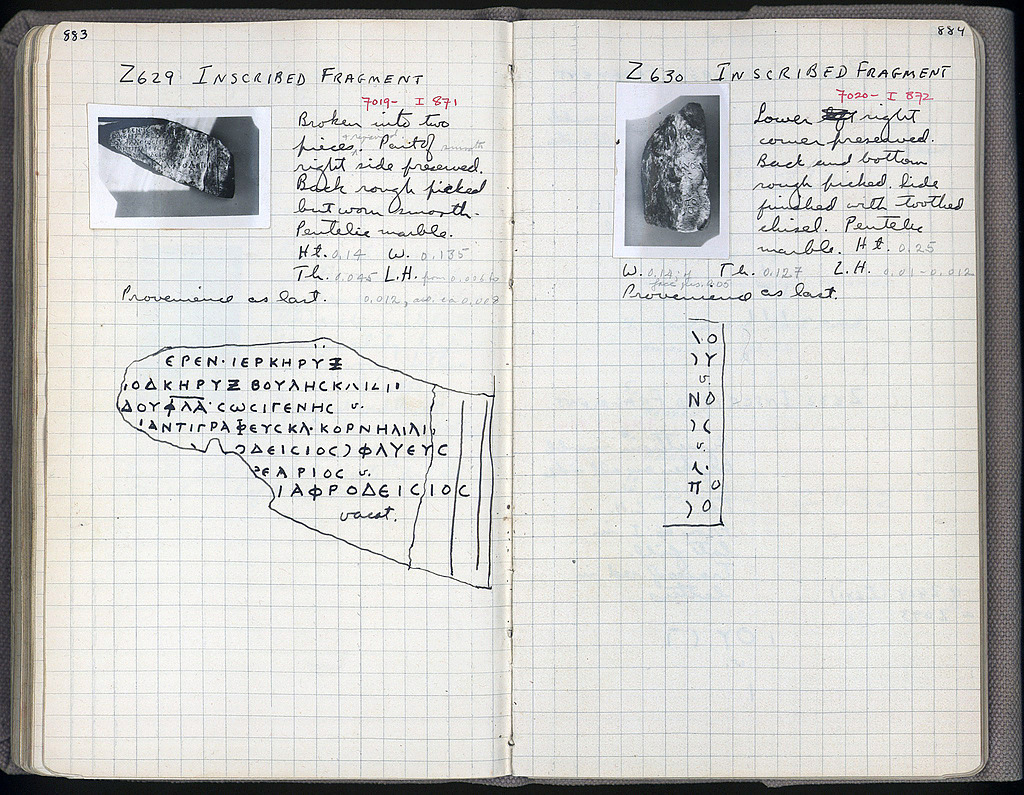 883
Z629 INSCRIBED FRAGMENT
7019- I 871
Broken into two
pieces. Part of smooth
right side preserved.
Back rough picked
but worn smooth.
Pentelic marble.
Ht. 0.14 W. 0.135
Th. 0.045 L.H. from 0.006 to
0.012, av. ca 0.008
Provenience as last.
ΕΡΕΝ·ΙΕΡΚΗΡΥΞ
ΟΔΚΗΡΥΞ ΒΟΥΛΗϹΚΛ
ΔΟΥΦΛΑ·ϹΩϹΙΓΕΝΗϹ v.
ΑΝΤΙΓΡΑΦΕΥϹΚΛ·ΚΟΡΝΗΛΙ
ΟΔΕΙϹΙΟϹ) ΦΛΥΕΥϹ
ΕΑΡΙΟϹ v.
ΙΑΦΡΟΔΕΙϹΙΟϹ
vacat.
884
Z630 INSCRIBED FRAGMENT
7020- I 872
Lower right
corner preserved.
Back and bottom
rough picked. Side
finished with toothed
chisel. Pentelic
marble. Ht. 0.25
W. 0.14; Th. 0.127 L.H. 0.01-0.012
face pres. 0.05
Provenience as last.
\Ο
)Υ
v.
ΝΟ
)Ϲ
v.
Λ.
ΠΟ
)Ο